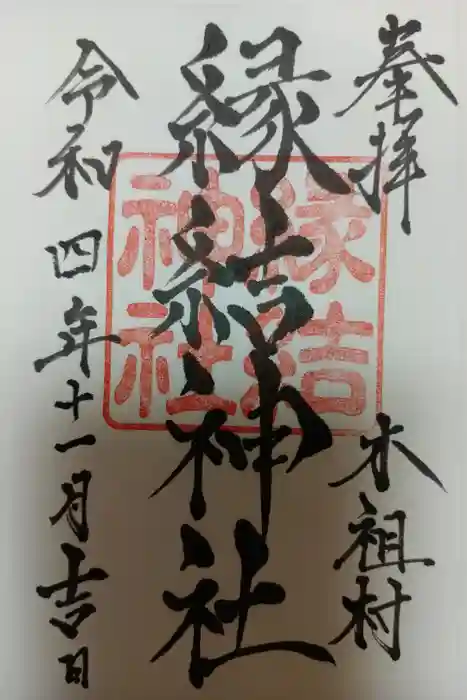 奉拝
木祖村
縁結神社
縁結
神社
令和四年十一月吉日